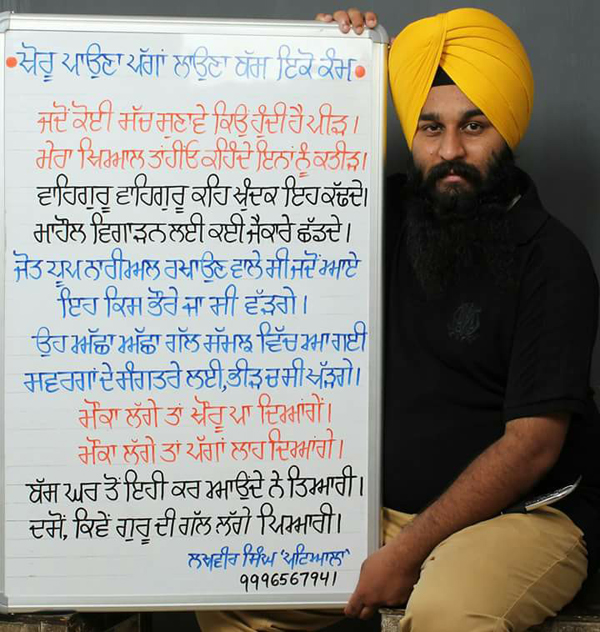 ਖੌਰੂ ਪਾਉਣਾ ਪੱਗਾਂ ਲਾਉਣਾ ਬੱਸ ਇਕੋ ਕੰਮ
ਜਦੋਂ ਕੋਈ ਸੱਚ ਸੁਣਾਵੇ ਕਿਉਂ ਹੁੰਦੀ ਹੈ ਪੀੜ।
ਮੇਰਾ ਖਿਆਲ ਤਾਂਹੀਓ ਕਹਿੰਦੇ ਇਨਾਂ ਨੂੰ ਕਤੀੜ।
ਵਾਹਿਗੁਰੂ ਵਾਹਿਗੁਰੂ ਕਹਿ ਖੁੰਦਕ ਇਹ ਕੱਢਦੇ।
ਮਾਹੌਲ ਵਿਗਾੜਨ ਲਈ ਕਈ ਜੈਕਾਰੇ ਛੱਡਦੇ।
ਜੋਤ ਧੂਪ ਨਾਰੀਅਲ ਰਖਾਉਣ ਵਾਲੇ ਸੀ ਜਦੋਂ ਆਏ
ਇਹ ਕਿਸ ਭੌਰੇ ਜਾ ਸੀ ਵੱੜਗੇ।
ਉਹ ਅੱਛਾ ਅੱਛਾ ਗੱਲ ਸੱਮਝ ਵਿੱਚ ਆ ਗਈ
ਸਵਰਗਾਂ ਦੇ ਸੰਗਤਰੇ ਲਈ, ਭੀੜ ਚ ਸੀ ਅੱੜਗੇ।
ਮੌਕਾ ਲੱਗੇ ਤਾਂ ਖੌਰੂ ਪਾ ਦਿਆਂਗੇਂ।
ਮੌਕਾ ਲੱਗੇ ਤਾਂ ਪੱਗਾਂ ਲਾਹ ਦਿਆਂਗੇ।
ਬੱਸ ਘਰ ਤੋਂ ਇਹੀ ਕਰ ਆਉਂਦੇ ਨੇ ਤਿਆਰੀ।
ਦਸੋਂ, ਕਿਵੇਂ ਗੁਰੂ ਦੀ ਗੱਲ ਲੱਗੇ ਪਿਆਰੀ।
ਲਖਵੀਰ ਸਿੰਘ 'ਪਟਿਆਲਾ'
9996567941